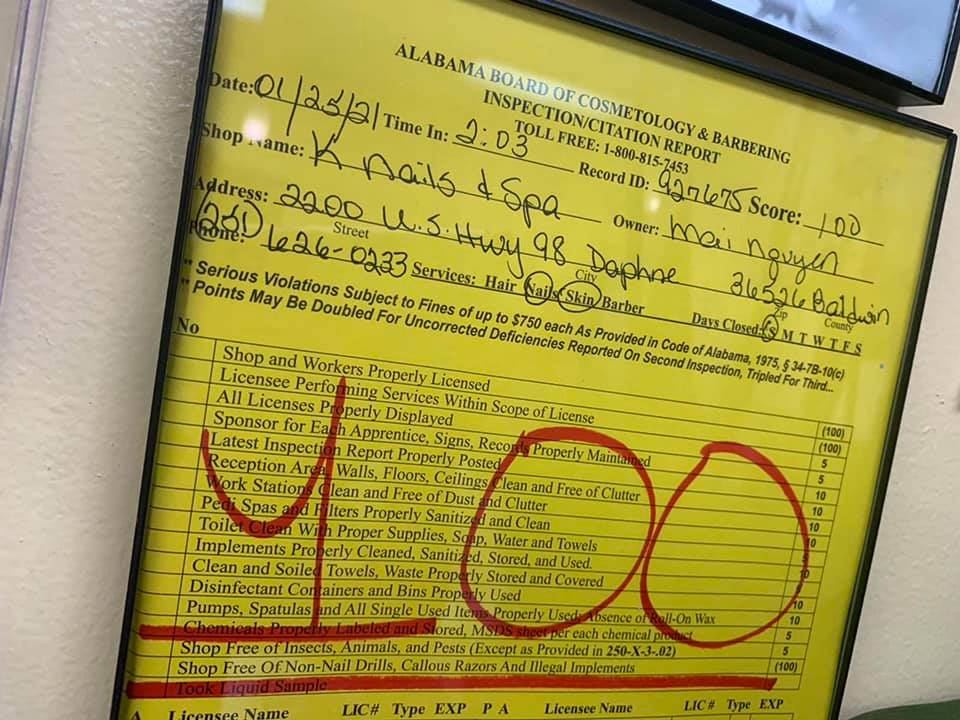 ALABAMA BOARD OF COSMETOLOGY & BARBERING
INSPECTION/CITATION REPORT
TOLL FREE: 1-800-815-7453
Date: 01/25/21 Time In: 2:03 Record ID: 927675 Score: 100
Shop Name: K Nails & Spa Owner: Mai Nguyen
Address: 2200 U.S. Hwy 98 Daphne 36526 Baldwin
Street City Zip County
Phone: (251) 626-0233 Services: Hair Nails Skin Barber Days Closed: S M T W T F S
** Serious Violations Subject to Fines of up to $750 each As Provided in Code of Alabama, 1975, § 34-7B-10(c)
** Points May Be Doubled For Uncorrected Deficiencies Reported On Second Inspection, Tripled For Third...
No
Shop and Workers Properly Licensed (100)
Licensee Performing Services Within Scope of License (100)
All Licenses Properly Displayed 5
Sponsor for Each Apprentice, Signs, Records Properly Maintained 5
Latest Inspection Report Properly Posted 10
Reception Area, Walls, Floors, Ceilings Clean and Free of Clutter 10
Work Stations Clean and Free of Dust and Clutter 10
Pedi Spas and Filters Properly Sanitized and Clean
Toilet Clean With Proper Supplies, Soap, Water and Towels
Implements Properly Cleaned, Sanitized, Stored, and Used.
Clean and Soiled Towels, Waste Properly Stored and Covered
Disinfectant Containers and Bins Properly Used 10
Pumps, Spatulas and All Single Used Items Properly Used; Absence of Roll-On Wax 10
Chemicals Properly Labeled and Stored, MSDS sheet per each chemical product 5
Shop Free of Insects, Animals, and Pests (Except as Provided in 250-X-3-.02) 5
Shop Free Of Non-Nail Drills, Callous Razors And Illegal Implements (100)
Took Liquid Sample
100
A Licensee Name LIC # Type EXP P A Licensee Name LIC # Type EXP